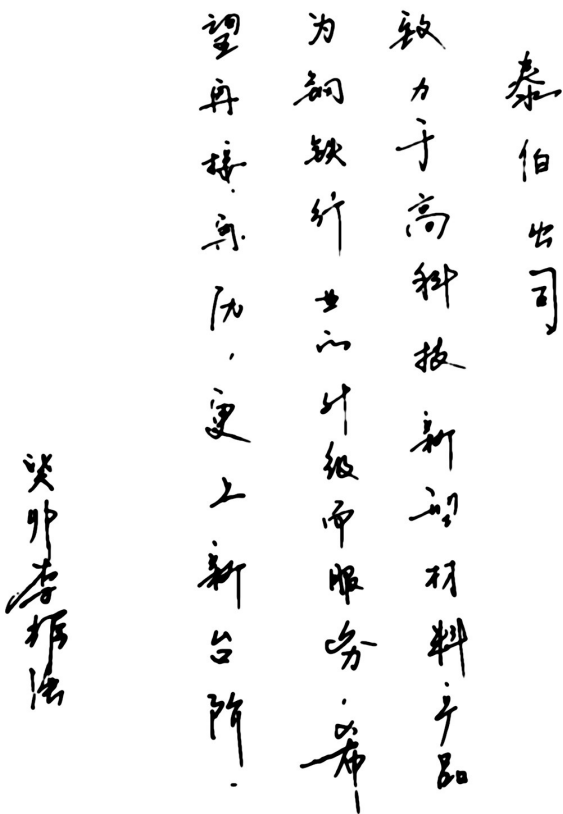 泰伯公司
致力于高科技新型材料产品
为钢铁行业的升级而服务,希
望再接再历,更上新台阶.
癸卯李振法